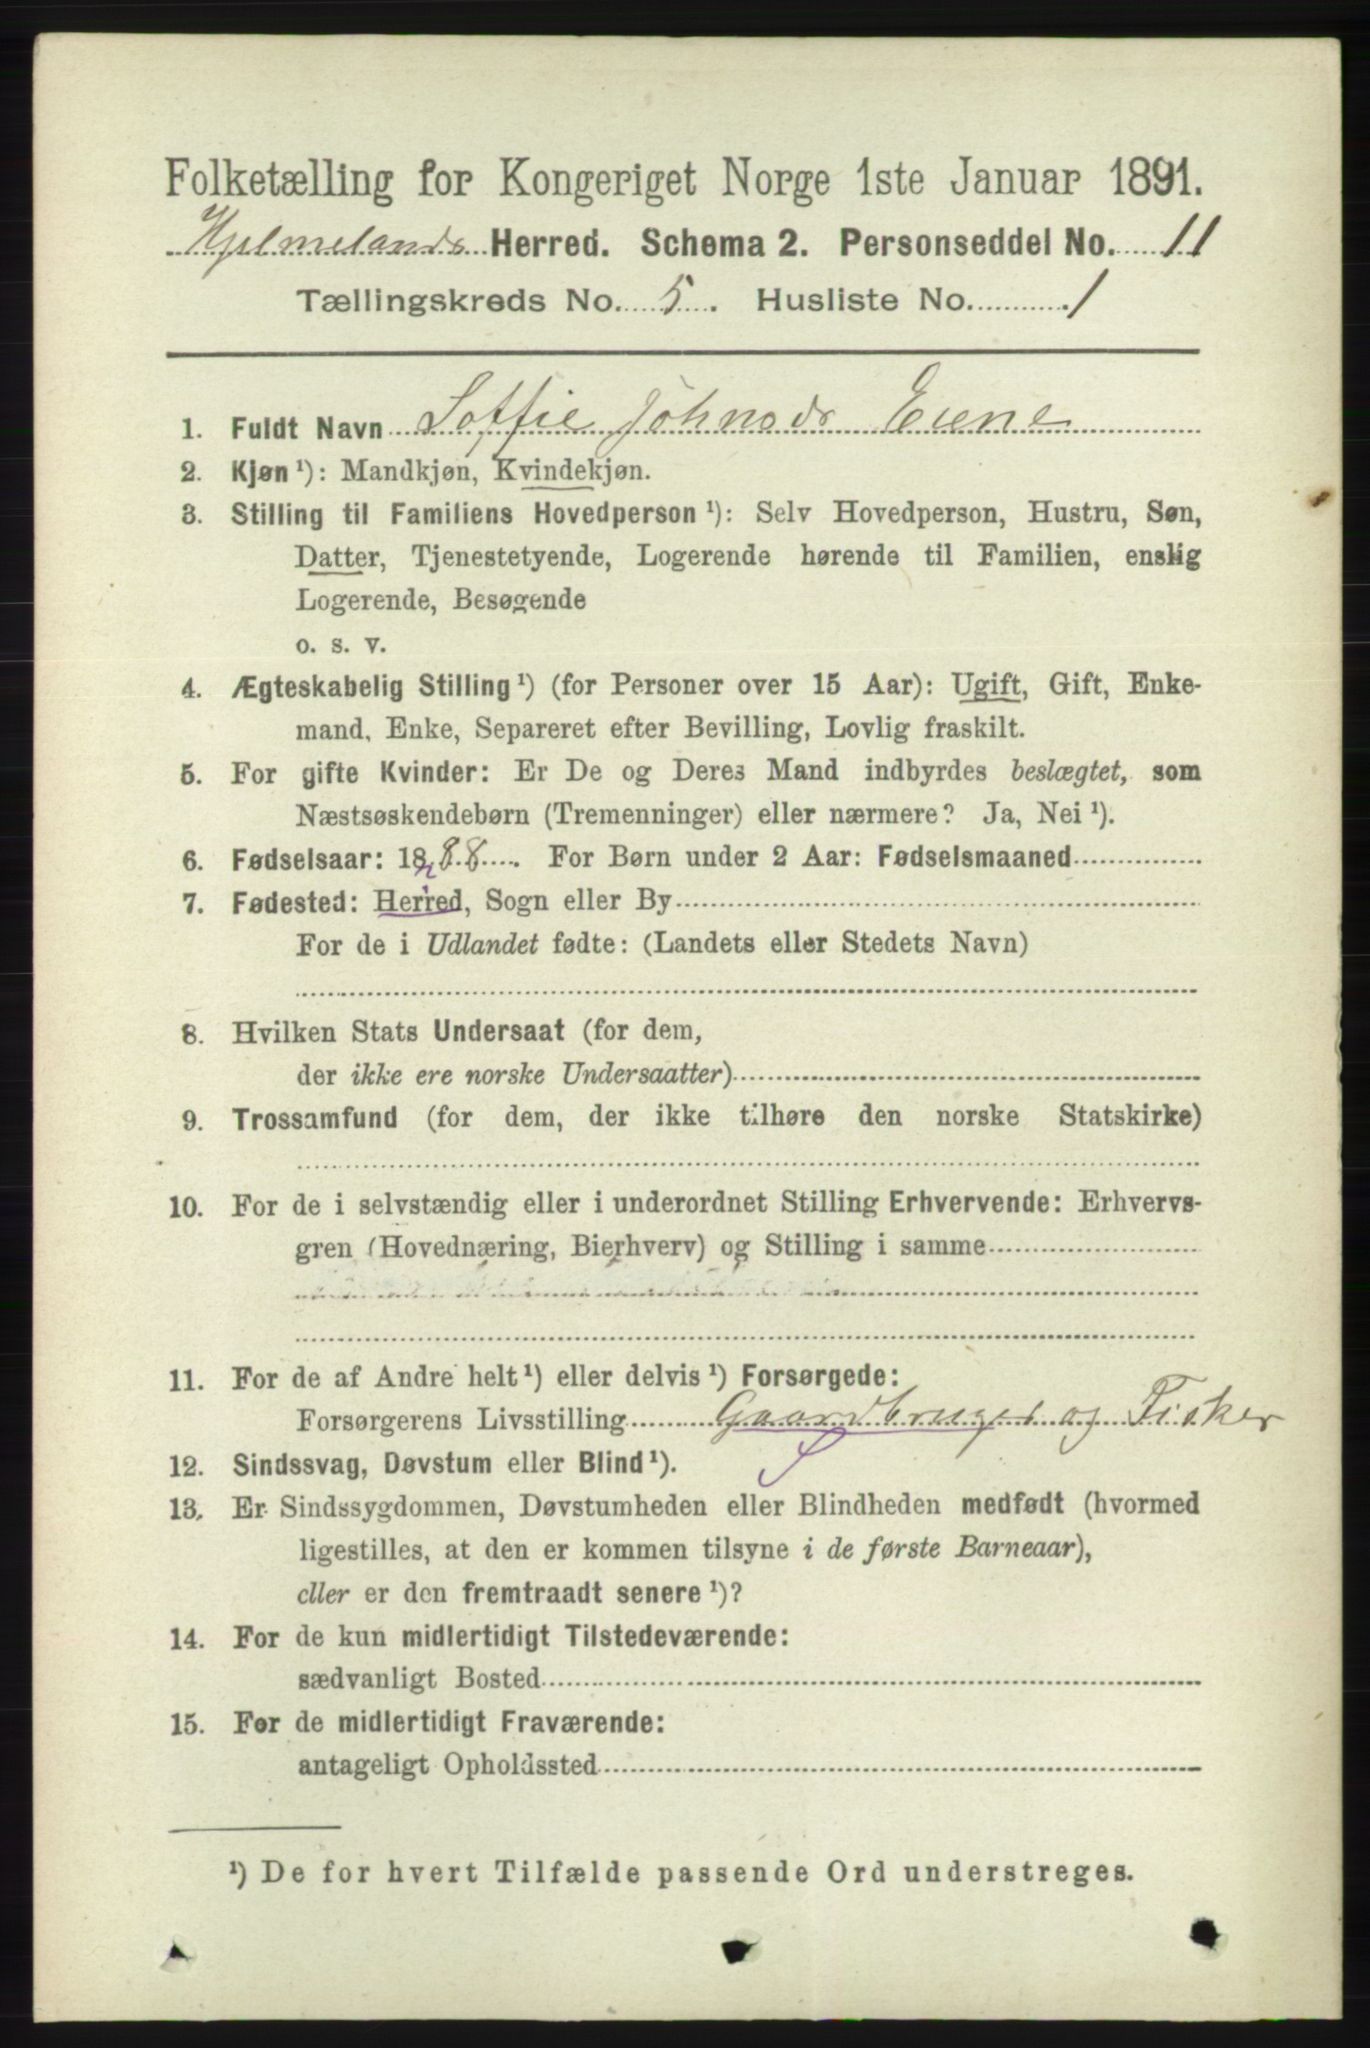 Folketælling for Kongeriget Norge 1ste Januar 1891.
Hjelmelands Herred. Schema 2. Personseddel No. 11
Tællingskreds No. 5. Husliste No. 1
1. Fuldt Navn Soffie Johnsdr Eiene
2. Kjøn ¹): Mandkjøn, Kvindekjøn.
3. Stilling til Familiens Hovedperson ¹): Selv Hovedperson, Hustru, Søn,
Datter, Tjenestetyende, Logerende hørende til Familien, enslig
Logerende, Besøgende
o. s. v.
4. Ægteskabelig Stilling ¹) (for Personer over 15 Aar): Ugift, Gift, Enke-
mand, Enke, Separeret efter Bevilling, Lovlig fraskilt.
5. For gifte Kvinder: Er De og Deres Mand indbyrdes beslægtet, som
Næstsøskendebørn (Tremenninger) eller nærmere? Ja, Nei ¹).
6. Fødselsaar: 1888. For Børn under 2 Aar: Fødselsmaaned
7. Fødested: Herred, Sogn eller By
For de i Udlandet fødte: (Landets eller Stedets Navn)
8. Hvilken Stats Undersaat (for dem,
der ikke ere norske Undersaatter)
9. Trossamfund (for dem, der ikke tilhøre den norske Statskirke)
10. For de i selvstændig eller i underordnet Stilling Erhvervende: Erhvervs-
gren (Hovednæring, Bierhverv) og Stilling i samme
11. For de af Andre helt ¹) eller delvis ¹) Forsørgede:
Forsørgerens Livsstilling Gaardbruger og Fisker
12. Sindssvag, Døvstum eller Blind ¹).
13. Er Sindssygdommen, Døvstumheden eller Blindheden medfødt (hvormed
ligestilles, at den er kommen tilsyne i de første Barneaar),
eller er den fremtraadt senere ¹)?
14. For de kun midlertidigt Tilstedeværende:
sædvanligt Bosted
15. For de midlertidigt Fraværende:
antageligt Opholdssted
¹) De for hvert Tilfælde passende Ord understreges.